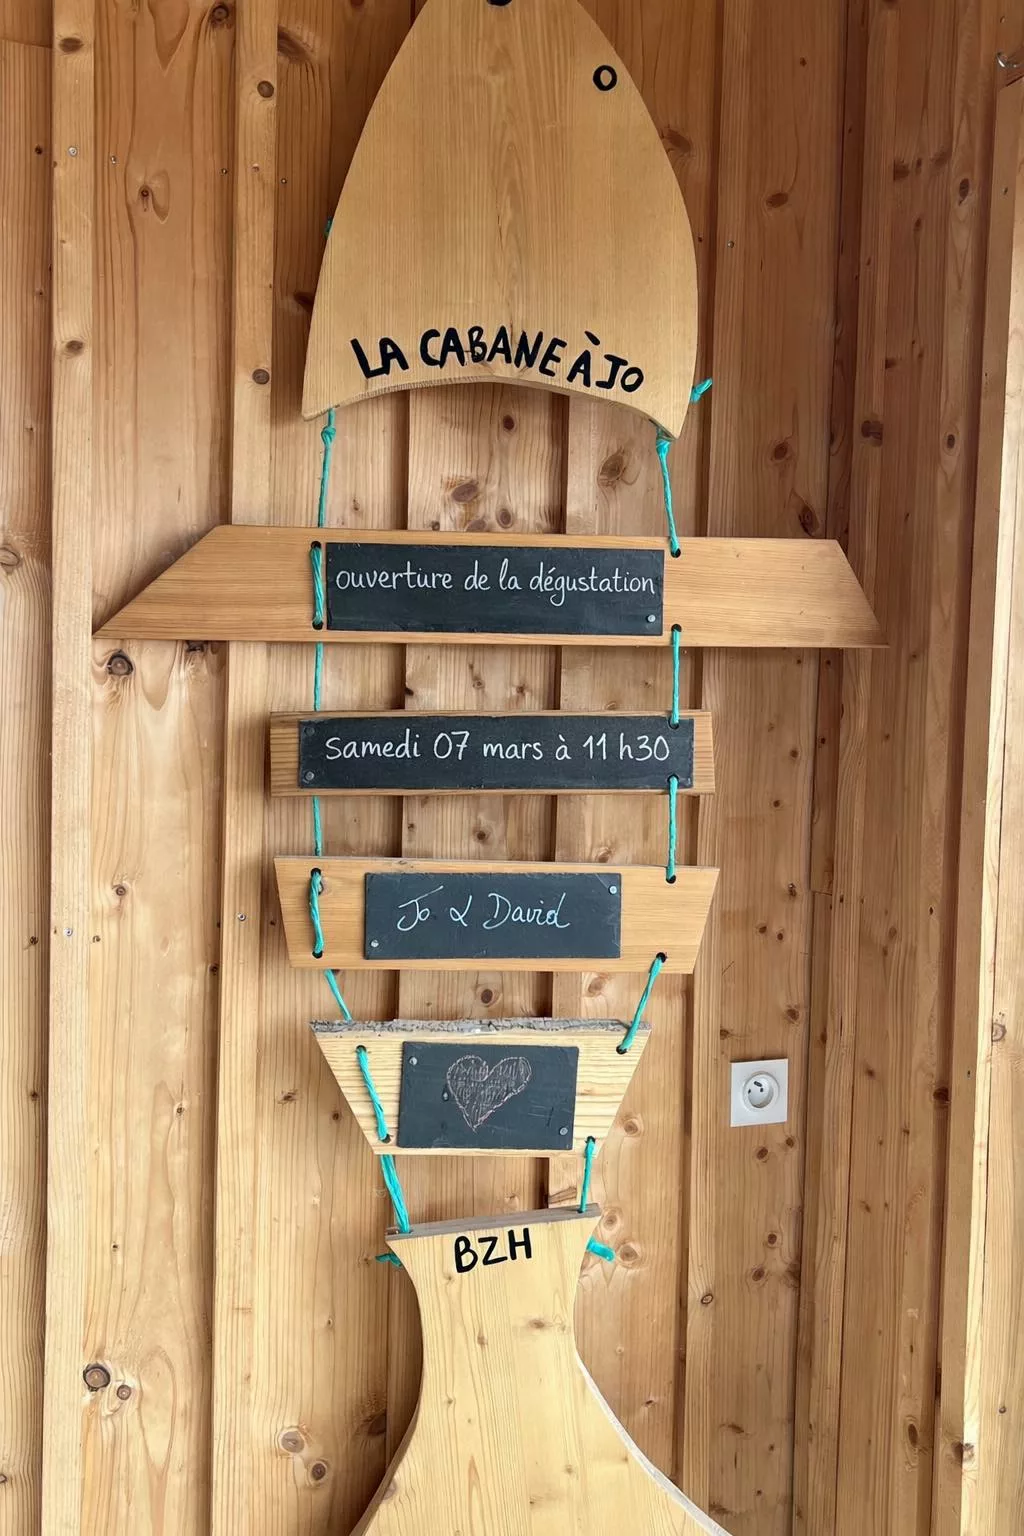 LA CABANE À JO
ouverture de la dégustation
samedi 07 mars à 11 h30
Jo & David
BZH